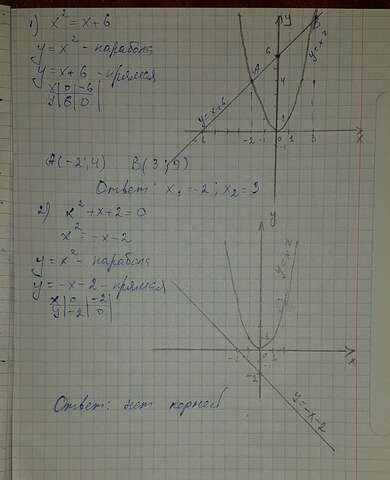 1) x² = x+6
y = x² - парабола
y = x+6 - прямая
x | 0 | -6
y | 6 | 0
y
B
y=x²
6
A
4
y=x+6
-6
-2
-1
0
1
3
x
A(-2;4) B(3;9)
Ответ: x₁=-2; x₂=3
2) x²+x+2=0
x² = -x-2
y = x² - парабола
y = -x-2 - прямая
x | 0 | -2
y | -2 | 0
y
y=x²
-2
0
x
-2
y=-x-2
Ответ: нет корней